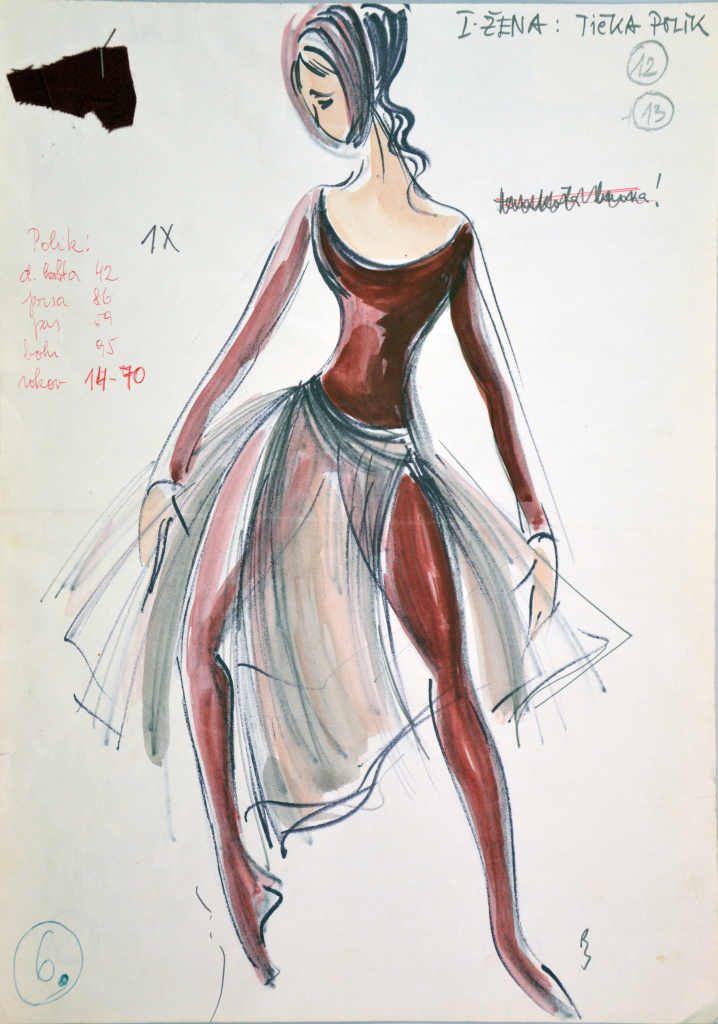 I. ŽENA: TIEKA POLIK
12
+13
1X
Polik:
42
prsa 86
pas 59
boki 95
rokov 14-70
6.